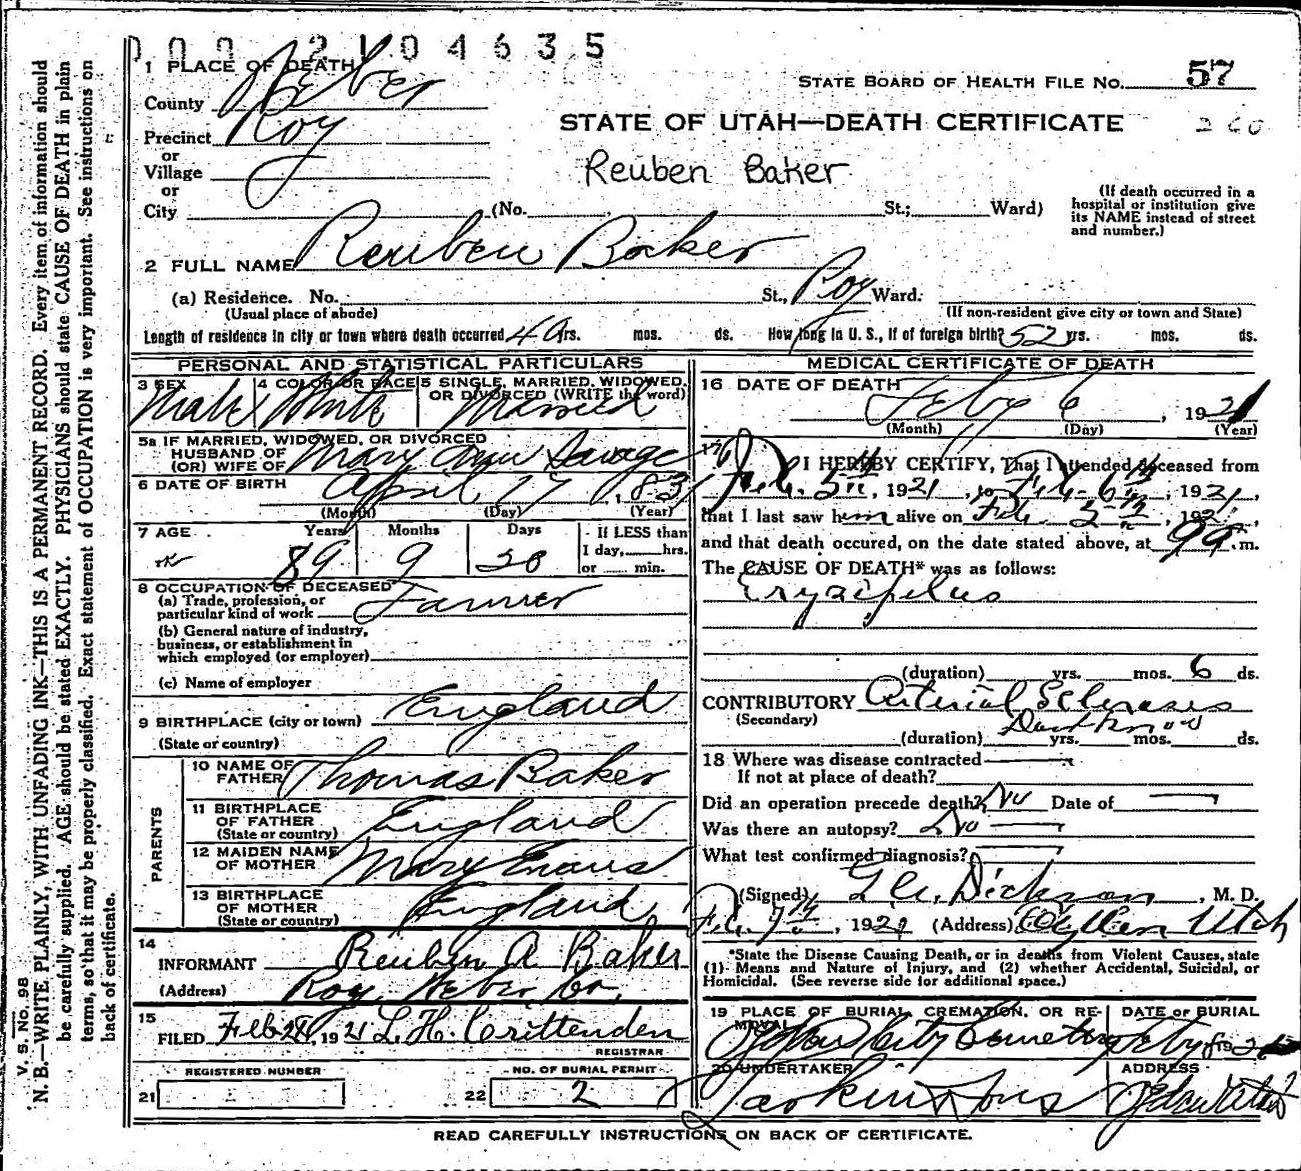 0 0 0 2 1 0 4 6 3 5
1 PLACE OF DEATH
STATE BOARD OF HEALTH FILE No. 57
County Weber
STATE OF UTAH—DEATH CERTIFICATE 260
Precinct Roy
or
Village
Reuben Baker
or
City (No. St.; Ward)
(If death occurred in a hospital or institution give its NAME instead of street and number.)
2 FULL NAME Reuben Baker
(a) Residence. No. St., Roy Ward.
(Usual place of abode) (If non-resident give city or town and State)
Length of residence in city or town where death occurred 49 yrs. mos. ds. How long in U. S., if of foreign birth? 52 yrs. mos. ds.
PERSONAL AND STATISTICAL PARTICULARS
3 SEX Male
4 COLOR OR RACE White
5 SINGLE, MARRIED, WIDOWED, OR DIVORCED (WRITE the word) Married
5a IF MARRIED, WIDOWED, OR DIVORCED
HUSBAND OF
(OR) WIFE OF Mary Ann Savage
6 DATE OF BIRTH April 17 1831
(Month) (Day) (Year)
7 AGE Years Months Days
89 9 20
If LESS than
1 day, hrs.
or min.
8 OCCUPATION OF DECEASED
(a) Trade, profession, or
particular kind of work Farmer
(b) General nature of industry,
business, or establishment in
which employed (or employer)
(c) Name of employer
9 BIRTHPLACE (city or town) England
(State or country)
PARENTS
10 NAME OF FATHER Thomas Baker
11 BIRTHPLACE OF FATHER England
(State or country)
12 MAIDEN NAME OF MOTHER Mary Evans
13 BIRTHPLACE OF MOTHER England
(State or country)
14
INFORMANT Reuben A Baker
(Address) Roy, Weber Co.
15
FILED Feb 28, 1921 L. H. Crittenden
REGISTRAR
REGISTERED NUMBER
21
NO. OF BURIAL PERMIT
22 2
MEDICAL CERTIFICATE OF DEATH
16 DATE OF DEATH
Feby 6, 1921
(Month) (Day) (Year)
17
I HEREBY CERTIFY, That I attended deceased from
Feb. 5th, 1921, to Feb. 6th, 1921,
that I last saw him alive on Feb. 5th, 1921,
and that death occured, on the date stated above, at 9 a.m.
The CAUSE OF DEATH* was as follows:
Erysipelas
(duration) yrs. mos. 6 ds.
CONTRIBUTORY Arterial Sclerosis
(Secondary) Don't know
(duration) yrs. mos. ds.
18 Where was disease contracted
If not at place of death?
Did an operation precede death? No Date of
Was there an autopsy? No
What test confirmed diagnosis?
(Signed) Dickson, M. D.
Feb. 7th, 1921 (Address) Ogden Utah
*State the Disease Causing Death, or in deaths from Violent Causes, state
(1) Means and Nature of Injury, and (2) whether Accidental, Suicidal, or
Homicidal. (See reverse side for additional space.)
19 PLACE OF BURIAL, CREMATION, OR REMOVAL
City Cemetery
DATE OF BURIAL
Feby 8
20 UNDERTAKER
Larkin & Sons
ADDRESS
Ogden Utah
READ CAREFULLY INSTRUCTIONS ON BACK OF CERTIFICATE.
V. S. No. 98
N. B.—WRITE PLAINLY, WITH UNFADING INK—THIS IS A PERMANENT RECORD. Every item of information should
be carefully supplied. AGE should be stated EXACTLY. PHYSICIANS should state CAUSE OF DEATH in plain
terms, so that it may be properly classified. Exact statement of OCCUPATION is very important. See instructions on
back of certificate.